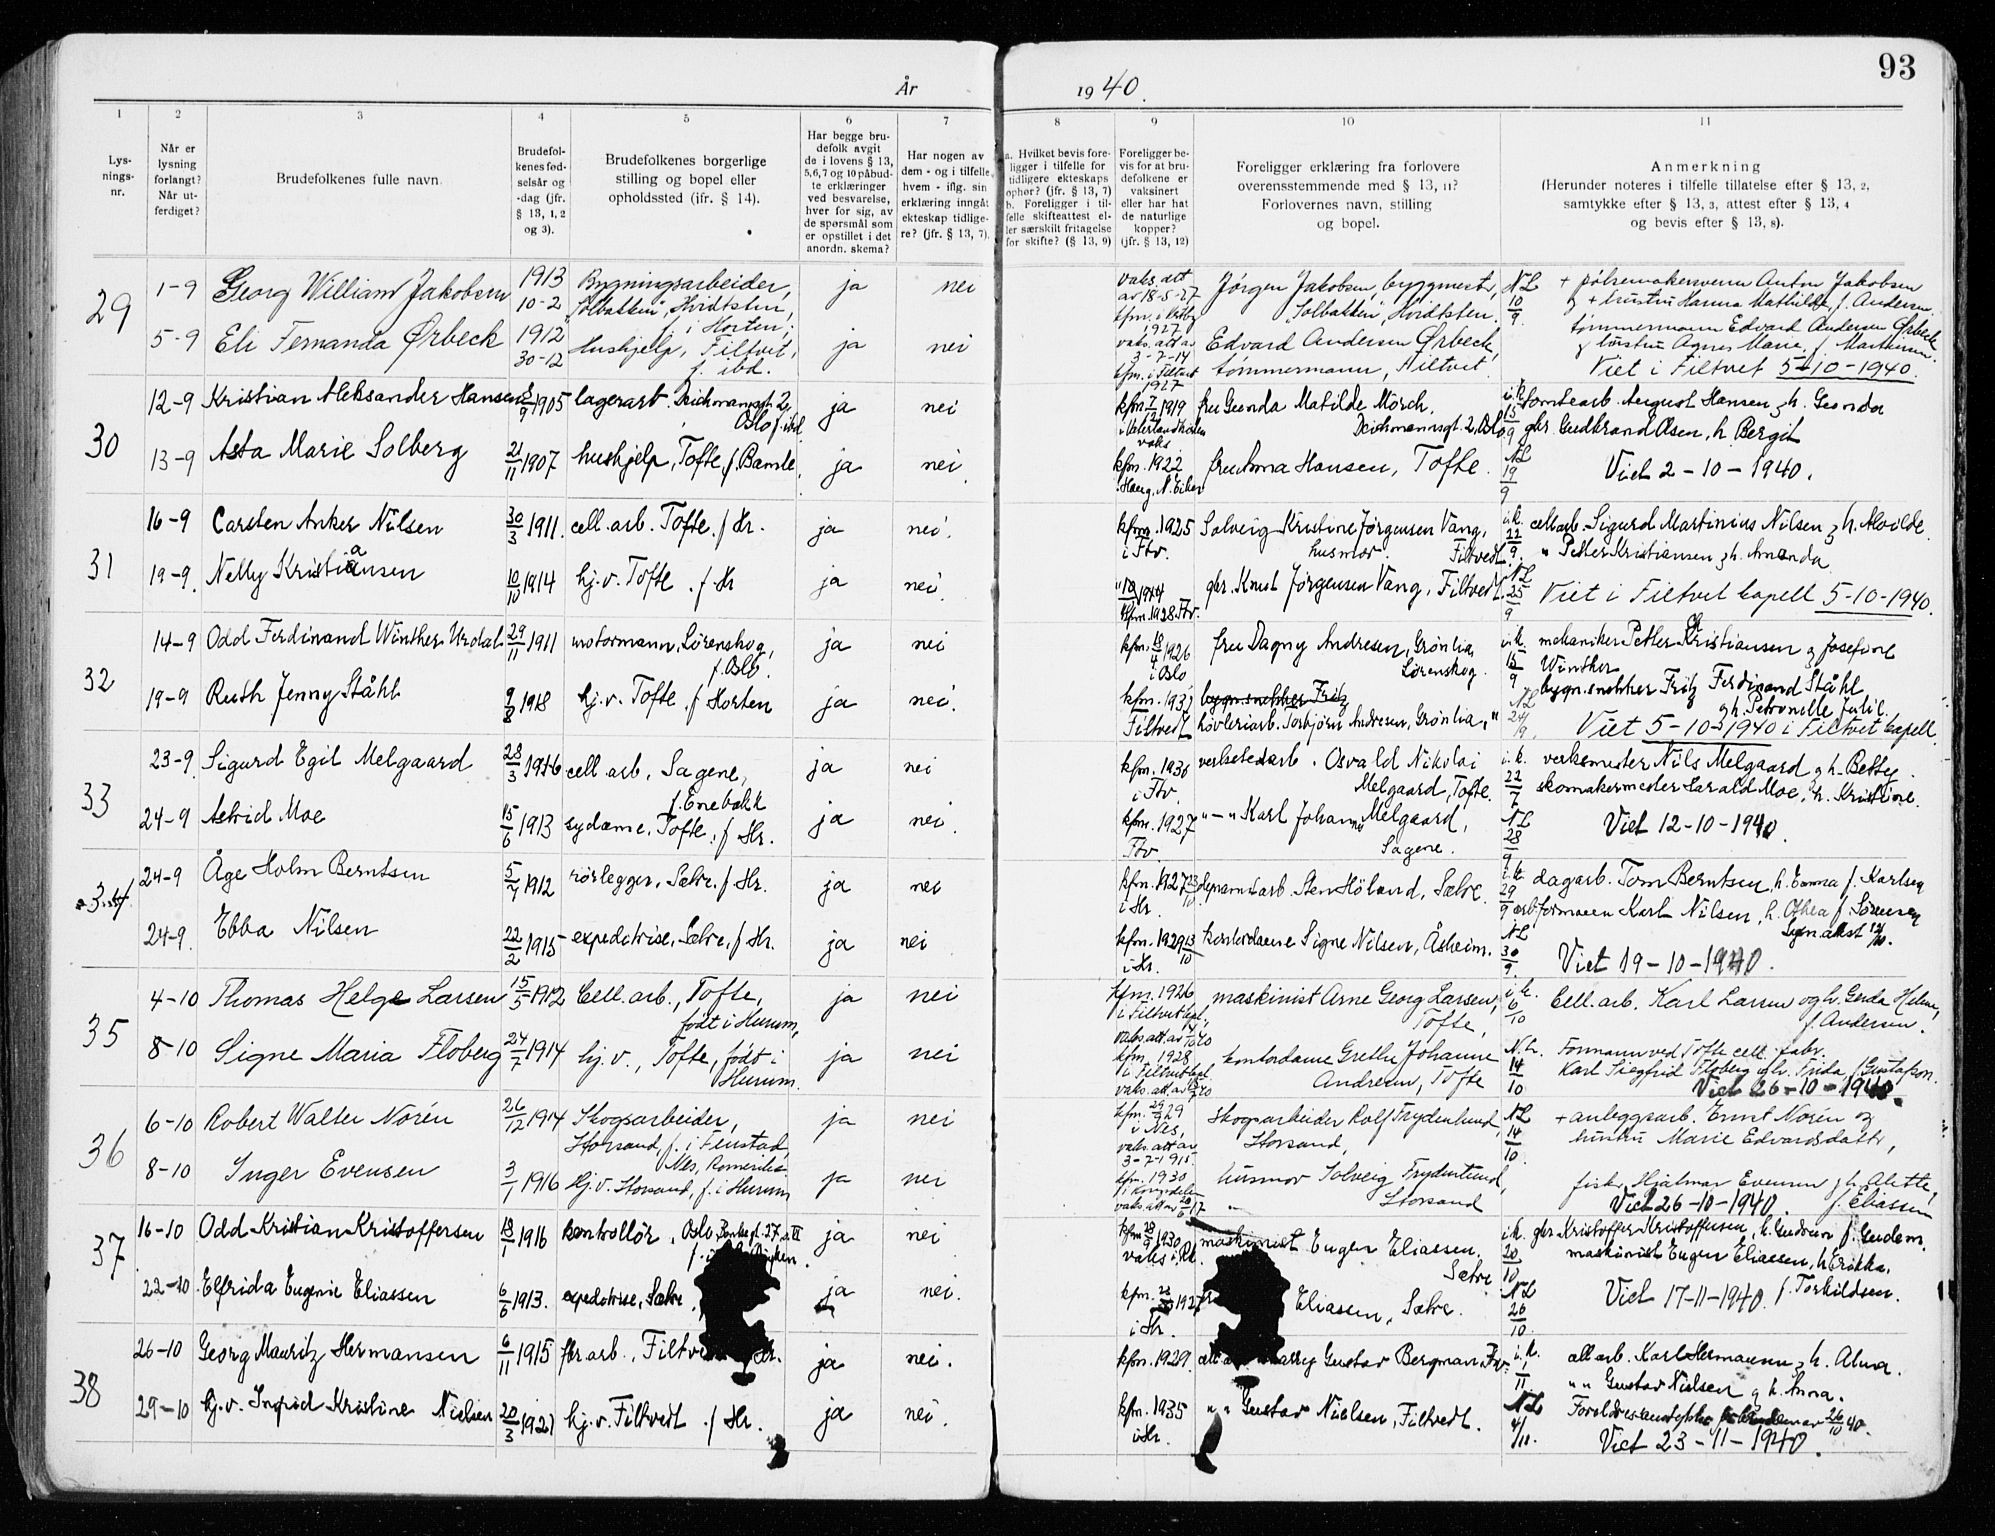 93
År 1940.
1 2 3 4 5 6 7 8 9 10 11
Lys-
nings-
nr.
Når er
lysning
forlangt?
Når ut-
ferdiget?
Brudefolkenes fulle navn
Brudefol-
kenes fød-
selsår og
-dag (jfr.
§ 13, 1, 2
og 3).
Brudefolkenes borgerlige
stilling og bopel eller
opholdssted (jfr. § 14).
Har begge bru-
defolk avgit
de i lovens § 13,
5,6,7 og 10 påbud-
te erklæringer
ved besvarelse,
hver for sig, av
de spørsmål som
er opstillet i det
anordn. skema?
Har nogen av
dem - og i tilfelle
hvem - iflg. sin
erklæring inngåt
ekteskap tidlige-
re? (jfr. § 13, 7).
a. Hvilket bevis fore-
ligger i tilfelle for
tidligere ekteskaps
ophør? (jfr. § 13, 7)
b. Foreligger i til-
felle skifteattest el-
ler særskilt fritagelse
for skifte? (§ 13, 9)
Foreligger be-
vis for at bru-
defolkene er
vaksinert
eller har hat
de naturlige
kopper?
(jfr. § 13, 12)
Foreligger erklæring fra forlovere
overensstemmende med § 13, 11?
Forlovernes navn, stilling
og bopel.
Anmerkning
(Herunder noteres i tilfelle tillatelse efter § 13, 2,
samtykke efter § 13, 3, attest efter § 13, 4
og bevis efter § 13, 8).
29
1-9 Georg William Jakobsen 1913 10-2 Bygningsarbeider, "Solbakken", Hvidtsten, f. i Horten; ja nei vaks. att av 18-5-27 kfm. i Vestby 1927 Jørgen Jakobsen, byggmest, "Solbakken", Hvidtsten. NL 10/9. + pølsemakersvenn Anton Jakobsen g + hustru Hanna Mathilde, f. Andersen.
5-9 Eli Fernanda Ørbeck 1912 30-12 Hushjelp, Filtvet, f. ibd. ja nei vaks. att av 3-7-14 kfm. i Filtvet 1927 Edvard Andersen Ørbeck, tømmermann, Filtvet. tømmermann Edvard Andersen Ørbeck g hustru Agnes Marie, f. Martinsen.
Viet i Filtvet 5-10-1940.
30
12-9 Kristian Aleksander Hansen 2/9 1905 lagerarb. Deichmannsgt. 2, Oslo f. ibd. ja nei kfm. 1919 vaks. fru Geonda Matilde Morch, Deichmannsgt. 2, Oslo i.k. 15/9 tomtearb. August Hansen g h. Geonda
13-9 Asta Marie Solberg 21/11 1907 hushjelp, Tofte, f. Bamle. ja nei kfm. 1922 Haug, N. Eiker fru Anna Hansen, Tofte. NL 19/9 gbr Gudbrand Olsen, h. Bergit
Viet 2-10-1940.
31
16-9 Carsten Anker Nilsen 30/3 1911. cell. arb. Tofte. f. Hr. ja nei. kfm. 1925 i Ftv. Solveig Kristine Jørgensen Vang, husmor. Filtvedt i.k. 22/9. cell arb. Sigurd Martinius Nilsen g h. Alvilde.
19-9. Nelly Kristiansen 10/10 1914 hj. v. Tofte. f. Hr ja nei. kfm. 1928 Ftv. gbr. Knut Jørgensen Vang, Filtvedt. NL 25/9 " Petter Kristiansen g h. Amanda.
Viet i Filtvet kapell 5-10-1940.
32
14-9 Odd Ferdinand Winther Urdal 29/11 1911 motormann, Lørenskog, f. Oslo. ja nei kfm. 1926 i Oslo fru Dagny Andresen, Grønlia, Lørenskog. i.k. 15/9 mekaniker Petter Kristiansen g Josefine Winther
19-9 Ruth Jenny Ståhl 9/8 1918 hj. v. Tofte. f. Horten ja nei. kfm. 1931 Filtvedt bygn.snekker Fritz høvleriarb. Torbjørn Andresen, Grønlia, " NL 24/9. bygn. snekker Fritz Ferdinand Ståhl g h. Petronelle Julie.
Viet 5-10-1940 i Filtvet kapell.
33
23-9. Sigurd Egil Melgaard 28/3 1916 cell arb, Sagene, f. Enebakk ja nei kfm. 1930 i Ftv. verkstedarb. Osvald Nikolai Melgaard, Tofte. i.k. 22/7 verksmester Nils Melgaard g h. Betty.
24-9 Astrid Moe 15/6 1913 sydame, Tofte. f. Hr. ja nei. kfm. 1927 Ftv. "-" Karl Johannes Melgaard, Sagene. NL 28/9 skomakermester Harald Moe, h. Kristine.
Viet 12-10-1940.
34
24-9 Åge Holm Berntsen 5/7 1912 rørlegger, Sætre. f. Hr. ja nei kfm. 1927 i Hr. Sten Höland, Sætre. i.k. 29/9 dagarb. Tom Berntsen, h. Emma f. Karlsen
24-9. Ebba Nilsen 22/2 1915 expeditrise, Sætre, f. Hr. ja nei kfm. 1929 i Hr. kontordame Signe Nilsen, Åsheim. NL 30/9. arb.formann Karl Nilsen, h. Othea f. Sørensen
Viet 19-10-1940.
35
4-10 Thomas Helge Larsen 15/5 1912 Cell. arb., Tofte, født i Hurum, ja nei kfm. 1926 i Filtvet kpl, maskinist Arne Georg Larsen, Tofte, i.k. 6/10 Cell. arb. Karl Larsen og h. Gerda Helene, f. Andersen.
8-10 Signe Maria Floberg 24/7 1914 hj. v., Tofte, født i Hurum. ja nei kfm. 1928, i Filtvet kpl kontordame Grethe Johanne Andresen, Tofte N.L. 14/10 Formann ved Tofte cell. fabr. Karl Siegfrid Floberg og h. Frida, f. Gustafson.
Viet 26-10-1940.
36
6-10 Robert Walter Norén 26/12 1914 Skogsarbeider, Storsand, f. i Fenstad, Nes, Romerike. ja nei kfm. 1929 i Nes, vaks. att av 3-7-1915. Skogsarbeider Rolf Frydenlund, Storsand, NL 14/10. + anleggsarb. Ernst Norén og hustru Marie Edvardsdatter,
8-10 Inger Evensen 3/1 1916 Hj. v. Storsand, f. i Hurum ja nei kfm. 1930 i Kongsdelen husmor Solveig Frydenlund, Storsand fisker Hjalmar Evensen g h. Alette, f. Eliassen
Viet 26-10-1940.
37
16-10 Odd Kristian Kristoffersen 18/1 1916 kontrollør, Oslo ja nei kfm 1930 maskinist Eugen Eliassen. Sætre i.k. 20/10 gbr Kristoffer Kristoffersen, h. Gudrun f. Gudem.
22-10 Elfrida Eugenie Eliassen 6/6 1913. expeditrise, Sætre, ja nei. kfm. 1927 i Hr. Eliassen, Sætre. NL 26/10. maskinist Eugen Eliassen, h Erikka, f. Torkildsen.
Viet 17-11-1940.
38
26-10 Georg Mauritz Hermansen 6/11 1915 fbr arb., Filtvedt Hr. ja nei. kfm. 1929. Gustav Bergman, Ftv. i.k. 1/11 cell arb. Karl Hermansen g h. Alma.
29-10 hj. v. Ingrid Kristine Nielsen 20/3 1921 hj. v. Filtvedt. f. Hr. ja nei. kfm. 1935 i Hr. " " Gustav Nielsen, Filtvedt. NL 4/11. " " Gustav Nielsen g h. Anna.
Viet 23-11-1940.